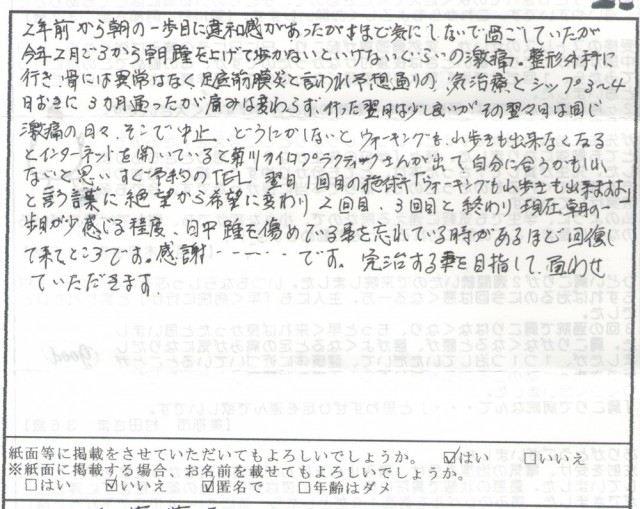 2年前から朝の一歩目に違和感があったがさほど気にしないで過ごしていたが
今年2月ごろから朝踵を上げて歩かないといけないぐらいの激痛。整形外科に
行き、骨には異常はなく足底筋膜炎と言われ予想通りの、電気治療とシップ3〜4
日おきに3カ月通ったが痛みは変わらず、行った翌日は少し良いがその翌々日は同じ
激痛の日々、そこで中止、どうにかしないとウォーキングも、山歩きも出来なくなる
とインターネットを開いていると菊川カイロプラクティックさんが出て、自分に合うのかもしれ
ないと思いすぐ予約のTEL、翌日1回目の施術「ウォーキングも山歩きも出来ますよ」
と言う言葉に絶望から希望に変わり、2回目、3回目と終わり、現在、朝の一
歩目が少し感じる程度、日中踵を傷めている事を忘れている時があるほど回復し
て来たところです。感謝‥‥‥です。完治する事を目指して、通わせ
ていただきます。
紙面等に掲載をさせていただいてもよろしいでしょうか。 ☑はい □いいえ
※紙面に掲載する場合、お名前を載せてもよろしいでしょうか。
□はい ☑いいえ ☑匿名で □年齢はダメ